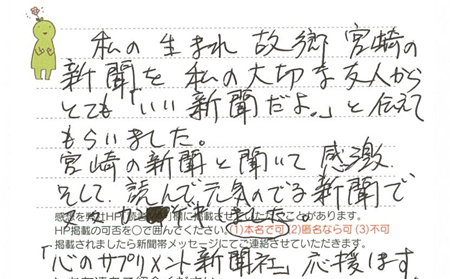 私の生まれ故郷宮崎の
新聞を私の大切な友人から
とても「いい新聞だよ。」と伝えて
もらいました。
宮崎の新聞と聞いて感激
そして読んで元気のでる新聞で
ました。
HP掲載の可否を○で囲んでください。(1)本名で可 (2)匿名なら可 (3)不可
掲載されましたら新聞帯メッセージにてご連絡させていただきます。
「心のサプリメント新聞社」応援します